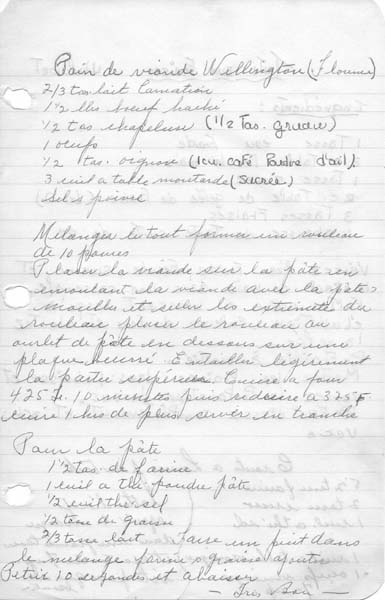 Pain de viande Wellington (Flourie)
2/3 tas lait Carnation
1 1/2 lbs boeuf haché
1/2 tas chapelure (1 1/2 Tas. Gruau)
1 oeufs
1/2 tas. oignon (1 cu. café Poudre d'ail).
3 cuil a table moutarde (sucrée)
Sel & poivre
Melanger le tout former un rouleau
de 10 pouces
Placer la viande sur la pâte en
enroulant la viande avec la pâte
mouiller et seller les extremites du
rouleau placer le rouleau au
ourlet de pâte en dessous sur une
plaque Entailler légèrement
la partie supérieure Cuire a four
425 F. 10 minutes puis réduire a 325 F
cuire 1 hrs de plus servir en tranche
Pour la pâte
1 1/2 tas. de farine
1 cuil a thé poudre pâte
1/2 cuil thé sel
1/2 tasse de graisse
2/3 tasse lait Faire un puit dans
le melange farine & graisse ajouter
Petrir 10 secondes et abaisser
- Très Bon -